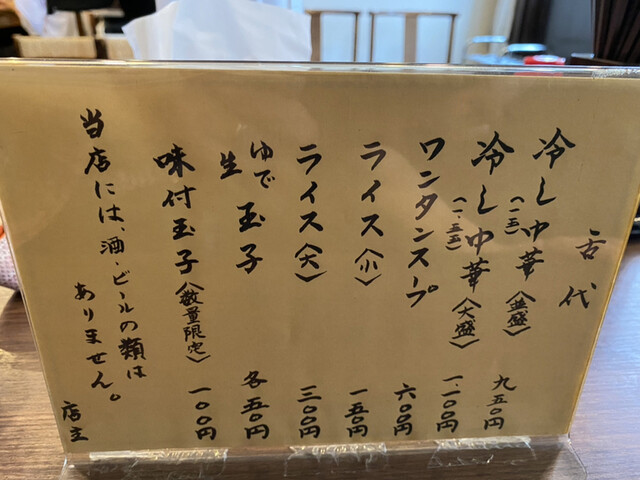 古代
冷し中華〈並盛〉(一玉) 九五〇円
冷し中華〈大盛〉(一.五玉) 一.一〇〇円
ワンタンスープ 六〇〇円
ライス〈小〉 一五〇円
ライス〈大〉 三〇〇円
ゆで 生 玉子 各五〇円
味付玉子〈数量限定〉 一〇〇円
当店には、酒・ビールの類は
ありません。
店主